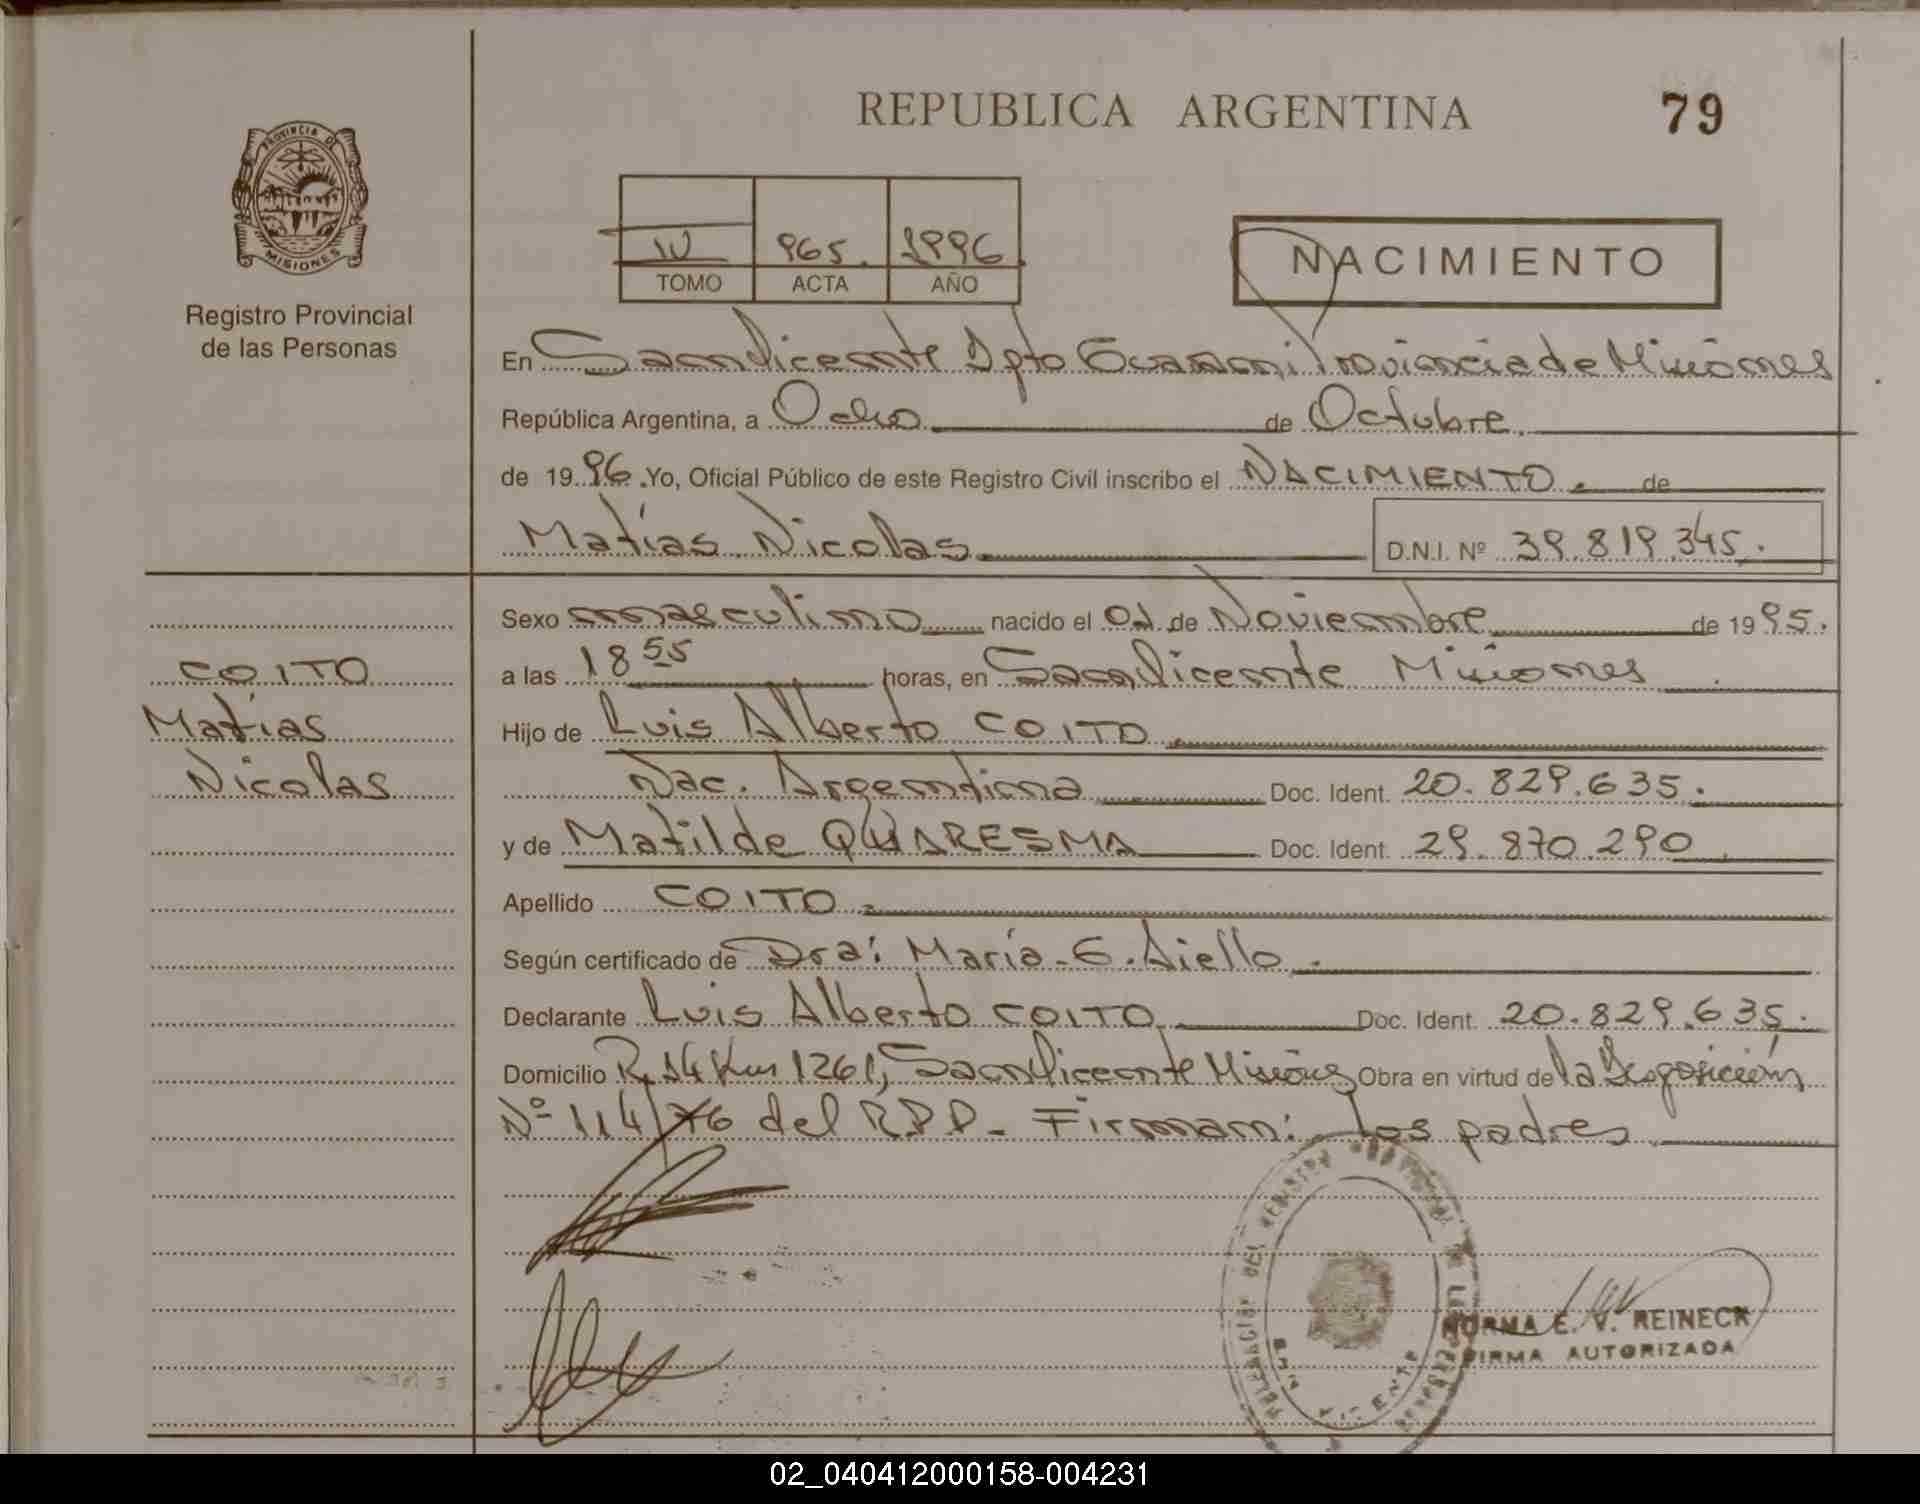 REPUBLICA ARGENTINA
79
PROVINCIA DE
MISIONES
Registro Provincial
de las Personas
IV 965. 1996
TOMO ACTA AÑO
NACIMIENTO
En San Vicente Dpto Guaraní Provincia de Misiones
República Argentina, a Ocho de Octubre
de 19 96. Yo, Oficial Público de este Registro Civil inscribo el NACIMIENTO. de
Matías Nicolas D.N.I. Nº 39.819.345.
Sexo masculino nacido el 01 de Noviembre de 19 95.
a las 18 55 horas, en San Vicente Misiones
COITO
Matías
Nicolas
Hijo de Luis Alberto COITO
Nac. Argentina Doc. Ident. 20.829.635.
y de Matilde QUARESMA Doc. Ident. 29.870.290
Apellido COITO
Según certificado de Dra: María G. Aiello
Declarante Luis Alberto COITO Doc. Ident. 20.829.635.
Domicilio R 14 Km 1261, San Vicente Misiones Obra en virtud de la Disposición
Nº 114/76 del RPP - Firman: los padres
DELEGACION DEL REGISTRO PROVINCIAL DE LAS PERSONAS
SAN VICENTE
NORMA E. V. REINECK
FIRMA AUTORIZADA
02_040412000158-004231